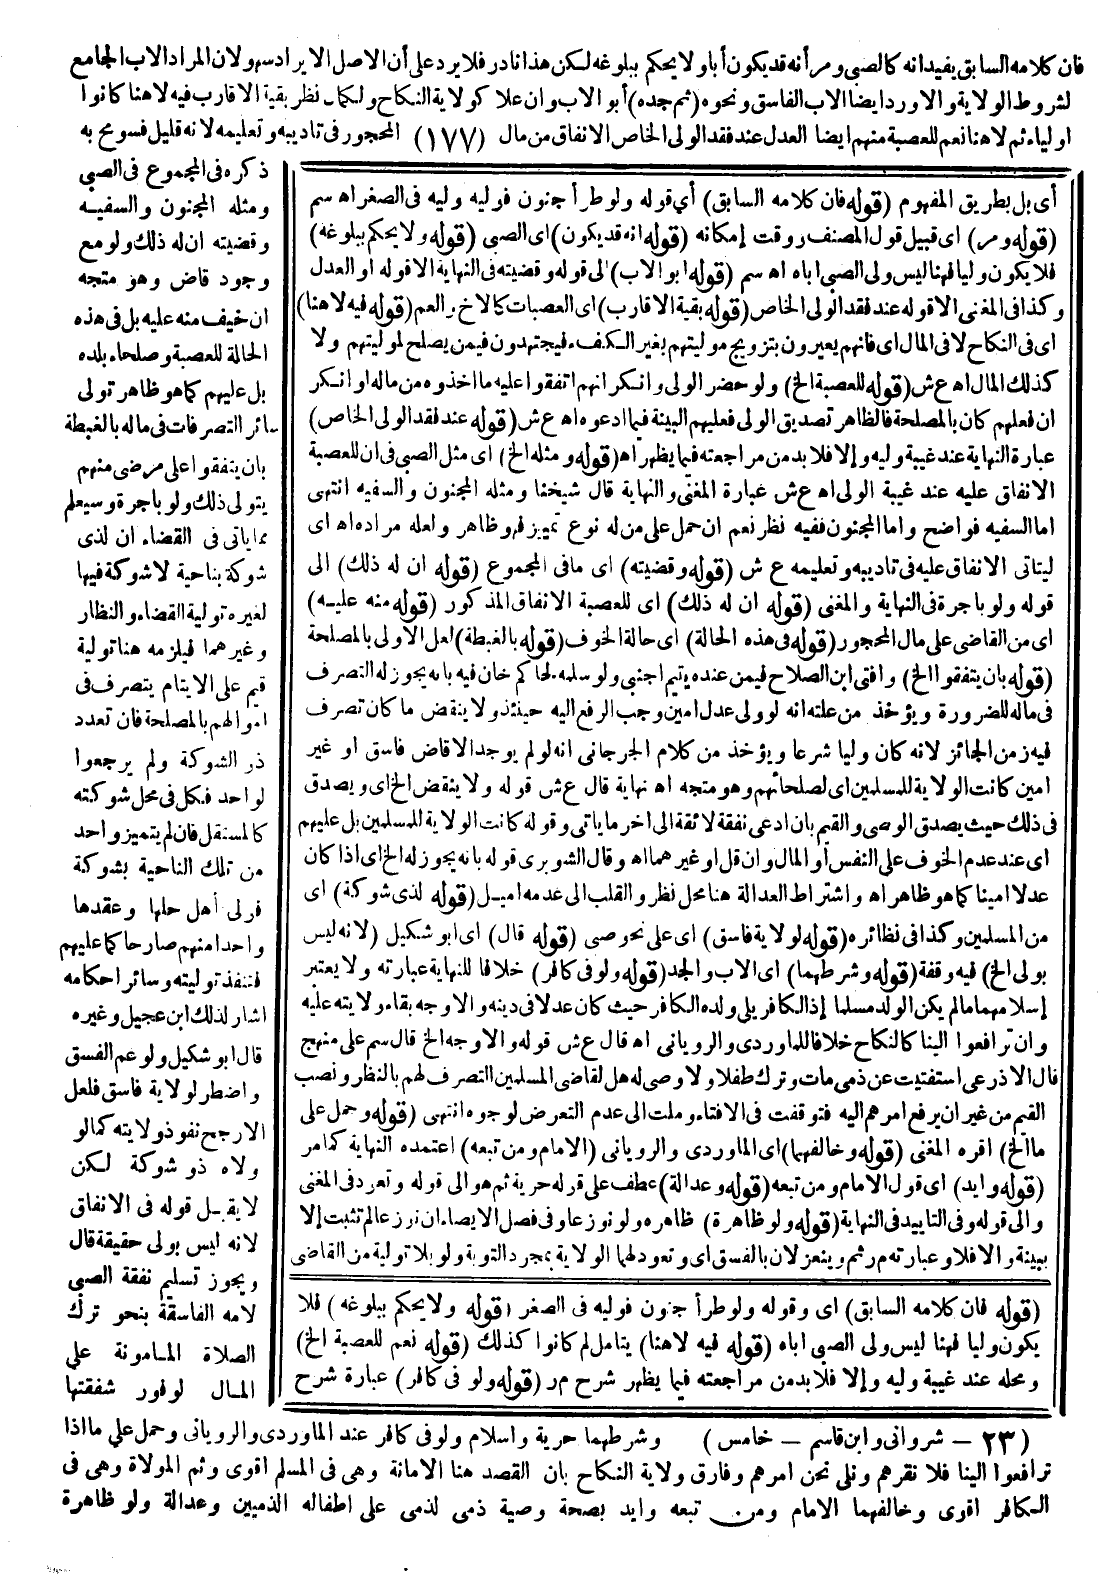 فان كلامه السابق يفيد انه كالصبي ومر أنه قد يكون أبا ولا يحكم ببلوغه لكن هذا نادر فلا يرد على أن الاصل الايراد سهو لان المراد الاب الجامع
لشروط الولاية والا ورد ايضا الاب الفاسق ونحوه (ثم جده) أبو الاب وان علا كولاية النكاح ولكمال نظر بقية الاقارب فيه لا هنا كانوا
اولياء ثم لا هنا نعم للعصبة منهم ايضا العدل عند فقد الولى الخاص الانفاق من مال (١٧٧) المحجور فى تاديبه وتعليمه لانه قليل فسومح به
ذكره فى المجموع فى الصبي
ومثله المجنون والسفيه
وقضيته ان له ذلك ولو مع
وجود قاض وهو متجه
ان خيف منه عليه بل فى هذه
الحالة للعصبة وصلحاء بلده
بل عليهم كما هو ظاهر تولى
سائر التصرفات فى ماله بالغبطة
بان يتفقوا على مرضى منهم
يتولى ذلك ولو باجرة وسيعلم
مما ياتى فى القضاء ان لذى
شوكة بناحية لا شوكة فيها
لغيره تولية القضاء والنظار
وغيرهما فيلزمه هنا تولية
قيم على الايتام يتصرف فى
اموالهم بالمصلحة فان تعدد
ذو الشوكة ولم يرجعوا
لواحد فكل فى محل شوكته
كالمستقل فان لم يتميز واحد
من تلك الناحية بشوكة
فولى أهل حلها وعقدها
واحدا منهم صار حاكما عليهم
فتنفذ توليته وسائر احكامه
اشار لذلك ابن عجيل وغيره
قال ابو شكيل ولو عم الفسق
واضطر لولاية فاسق فلعل
الارجح نفوذ ولايته كما لو
ولاه ذو شوكة لكن
لا يقبل قوله فى الانفاق
لانه ليس بولى حقيقة قال
ويجوز تسليم نفقة الصبى
لامه الفاسقة بنحو ترك
الصلاة المامونة على
المال لوفور شفقتها
أى بل بطريق المفهوم (قوله فان كلامه السابق) أي قوله ولو طرأ جنون فوليه وليه فى الصغر اه سم
(قوله ومر) اى قبيل قول المصنف ووقت إمكانه (قوله انه قد يكون) اى الصبى (قوله ولا يحكم ببلوغه)
فلا يكون وليا فهنا ليس ولى الصبى اباه اه سم (قوله ابو الاب) الى قوله وقضيته فى النهاية الا قوله او العدل
وكذا فى المغنى الا قوله عند فقد الولى الخاص (قوله بقية الاقارب) اى العصبات كالاخ والعم (قوله فيه لا هنا)
اى فى النكاح لا فى المال اى فانهم يعيرون بتزويج موليتهم بغير الكفء فيجتهدون فيمن يصلح لموليتهم ولا
كذلك المال اه ع ش (قوله للعصبة الخ) ولو حضر الولى وانكر انهم اتفقوا عليه ما اخذوه من ماله او انكر
ان فعلهم كان بالمصلحة فالظاهر تصديق الولى فعليهم البينة فيما ادعوه اه ع ش (قوله عند فقد الولى الخاص)
عبارة النهاية عند غيبة وليه وإلا فلا بد من مراجعته فيما يظهر اه (قوله ومثله الخ) اى مثل الصبى فى ان للعصبة
الانفاق عليه عند غيبة الولى اه ع ش عبارة المغنى والنهاية قال شيخنا ومثله المجنون والسفيه انتهى
اما السفيه فواضح واما المجنون ففيه نظر نعم ان حمل على من له نوع تمييز فهو ظاهر ولعله مراده اه اى
ليتاتى الانفاق عليه فى تاديبه وتعليمه ع ش (قوله وقضيته) اى ما فى المجموع (قوله ان له ذلك) الى
قوله ولو باجرة فى النهاية والمغنى (قوله ان له ذلك) اى للعصبة الانفاق المذكور (قوله منه عليه)
اى من القاضى على مال المحجور (قوله فى هذه الحالة) اى حالة الخوف (قوله بالغبطة) لعل الاولى بالمصلحة
(قوله بان يتفقوا الخ) وافتى ابن الصلاح فيمن عنده يتيم اجنبى ولو سلمه لحاكم خان فيه بانه يجوز له التصرف
فى ماله للضرورة ويؤخذ من علته انه لو ولى عدل امين وجب الرفع اليه حينئذ ولا ينقض ما كان تصرف
فيه زمن الجائز لانه كان وليا شرعا ويؤخذ من كلام الجرجانى انه لو لم يوجد الا قاض فاسق او غير
امين كانت الولاية للمسلمين اى لصلحائهم وهو متجه اه نهاية قال ع ش قوله ولا ينقض الخ اى ويصدق
فى ذلك حيث يصدق الوصى والقيم بان ادعى نفقة لائقة الى اخر ما ياتى وقوله كانت الولاية للمسلمين بل عليهم
اى عند عدم الخوف على النفس أو المال وان قل او غيرهما اه وقال الشوبرى قوله بانه يجوز له الخ اى اذا كان
عدلا امينا كما هو ظاهر اه واشتراط العدالة هنا محل نظر والقلب الى عدمه اميل (قوله لذى شوكة) اى
من المسلمين وكذا فى نظائره (قوله لولاية فاسق) اى على نحو صبى (قوله قال) اى ابو شكيل (لانه ليس
بولى الخ) فيه وقفة (قوله وشرطهما) اى الاب والجد (قوله ولو فى كافر) خلافا للنهاية عبارته ولا يعتبر
إسلامهما ما لم يكن الولد مسلما إذ الكافر يلى ولده الكافر حيث كان عدلا فى دينه والاوجه بقاء ولايته عليه
وان ترافعوا الينا كالنكاح خلافا للماوردى والرويانى اه قال ع ش قوله والاوجه الخ قال سم على منهج
قال الاذرعى استفتيت عن ذمى مات وترك طفلا ولا وصى له هل لقاضى المسلمين التصرف لهم بالنظر ونصب
القيم من غير ان يرفع امرهم اليه فتوقفت فى الافتاء وملت الى عدم التعرض لوجوه انتهى (قوله وحمل على
ما الخ) اقره المغنى (قوله وخالفهما) اى الماوردى والرويانى (الامام ومن تبعه) اعتمده النهاية كما مر
(قوله وايد) اى قول الامام ومن تبعه (قوله وعدالة) عطف على قوله حرية ثم هو الى قوله وتعود فى المغنى
والى قوله وفى التاييد فى النهاية (قوله ولو ظاهرة) ظاهره ولو نوزعا وفى فصل الايصاء ان نوزعا لم تثبت إلا
ببينة والا فلا وعبارته مر ثم وينعزلان بالفسق اى وتعود لهما الولاية بمجرد التوبة ولو بلا تولية من القاضى
(قوله فان كلامه السابق) اى وقوله ولو طرأ جنون فوليه فى الصغر (قوله ولا يحكم ببلوغه) فلا
يكون وليا فهنا ليس ولى الصبى اباه (قوله فيه لا هنا) يتامل لم كانوا كذلك (قوله نعم للعصبة الخ)
ومحله عند غيبة وليه وإلا فلا بد من مراجعته فيما يظهر شرح مر (قوله ولو فى كافر) عبارة شرح
(٢٣ – شروانى وابن قاسم – خامس) وشرطهما حرية واسلام ولو فى كافر عند الماوردى والرويانى وحمل على ما اذا
ترافعوا الينا فلا نقرهم ونلى نحن امرهم وفارق ولاية النكاح بان القصد هنا الامانة وهى فى المسلم اقوى وثم الموالاة وهى فى
الكافر اقوى وخالفهما الامام ومن تبعه وايد بصحة وصية ذمى لذمى على اطفاله الذميين وعدالة ولو ظاهرة